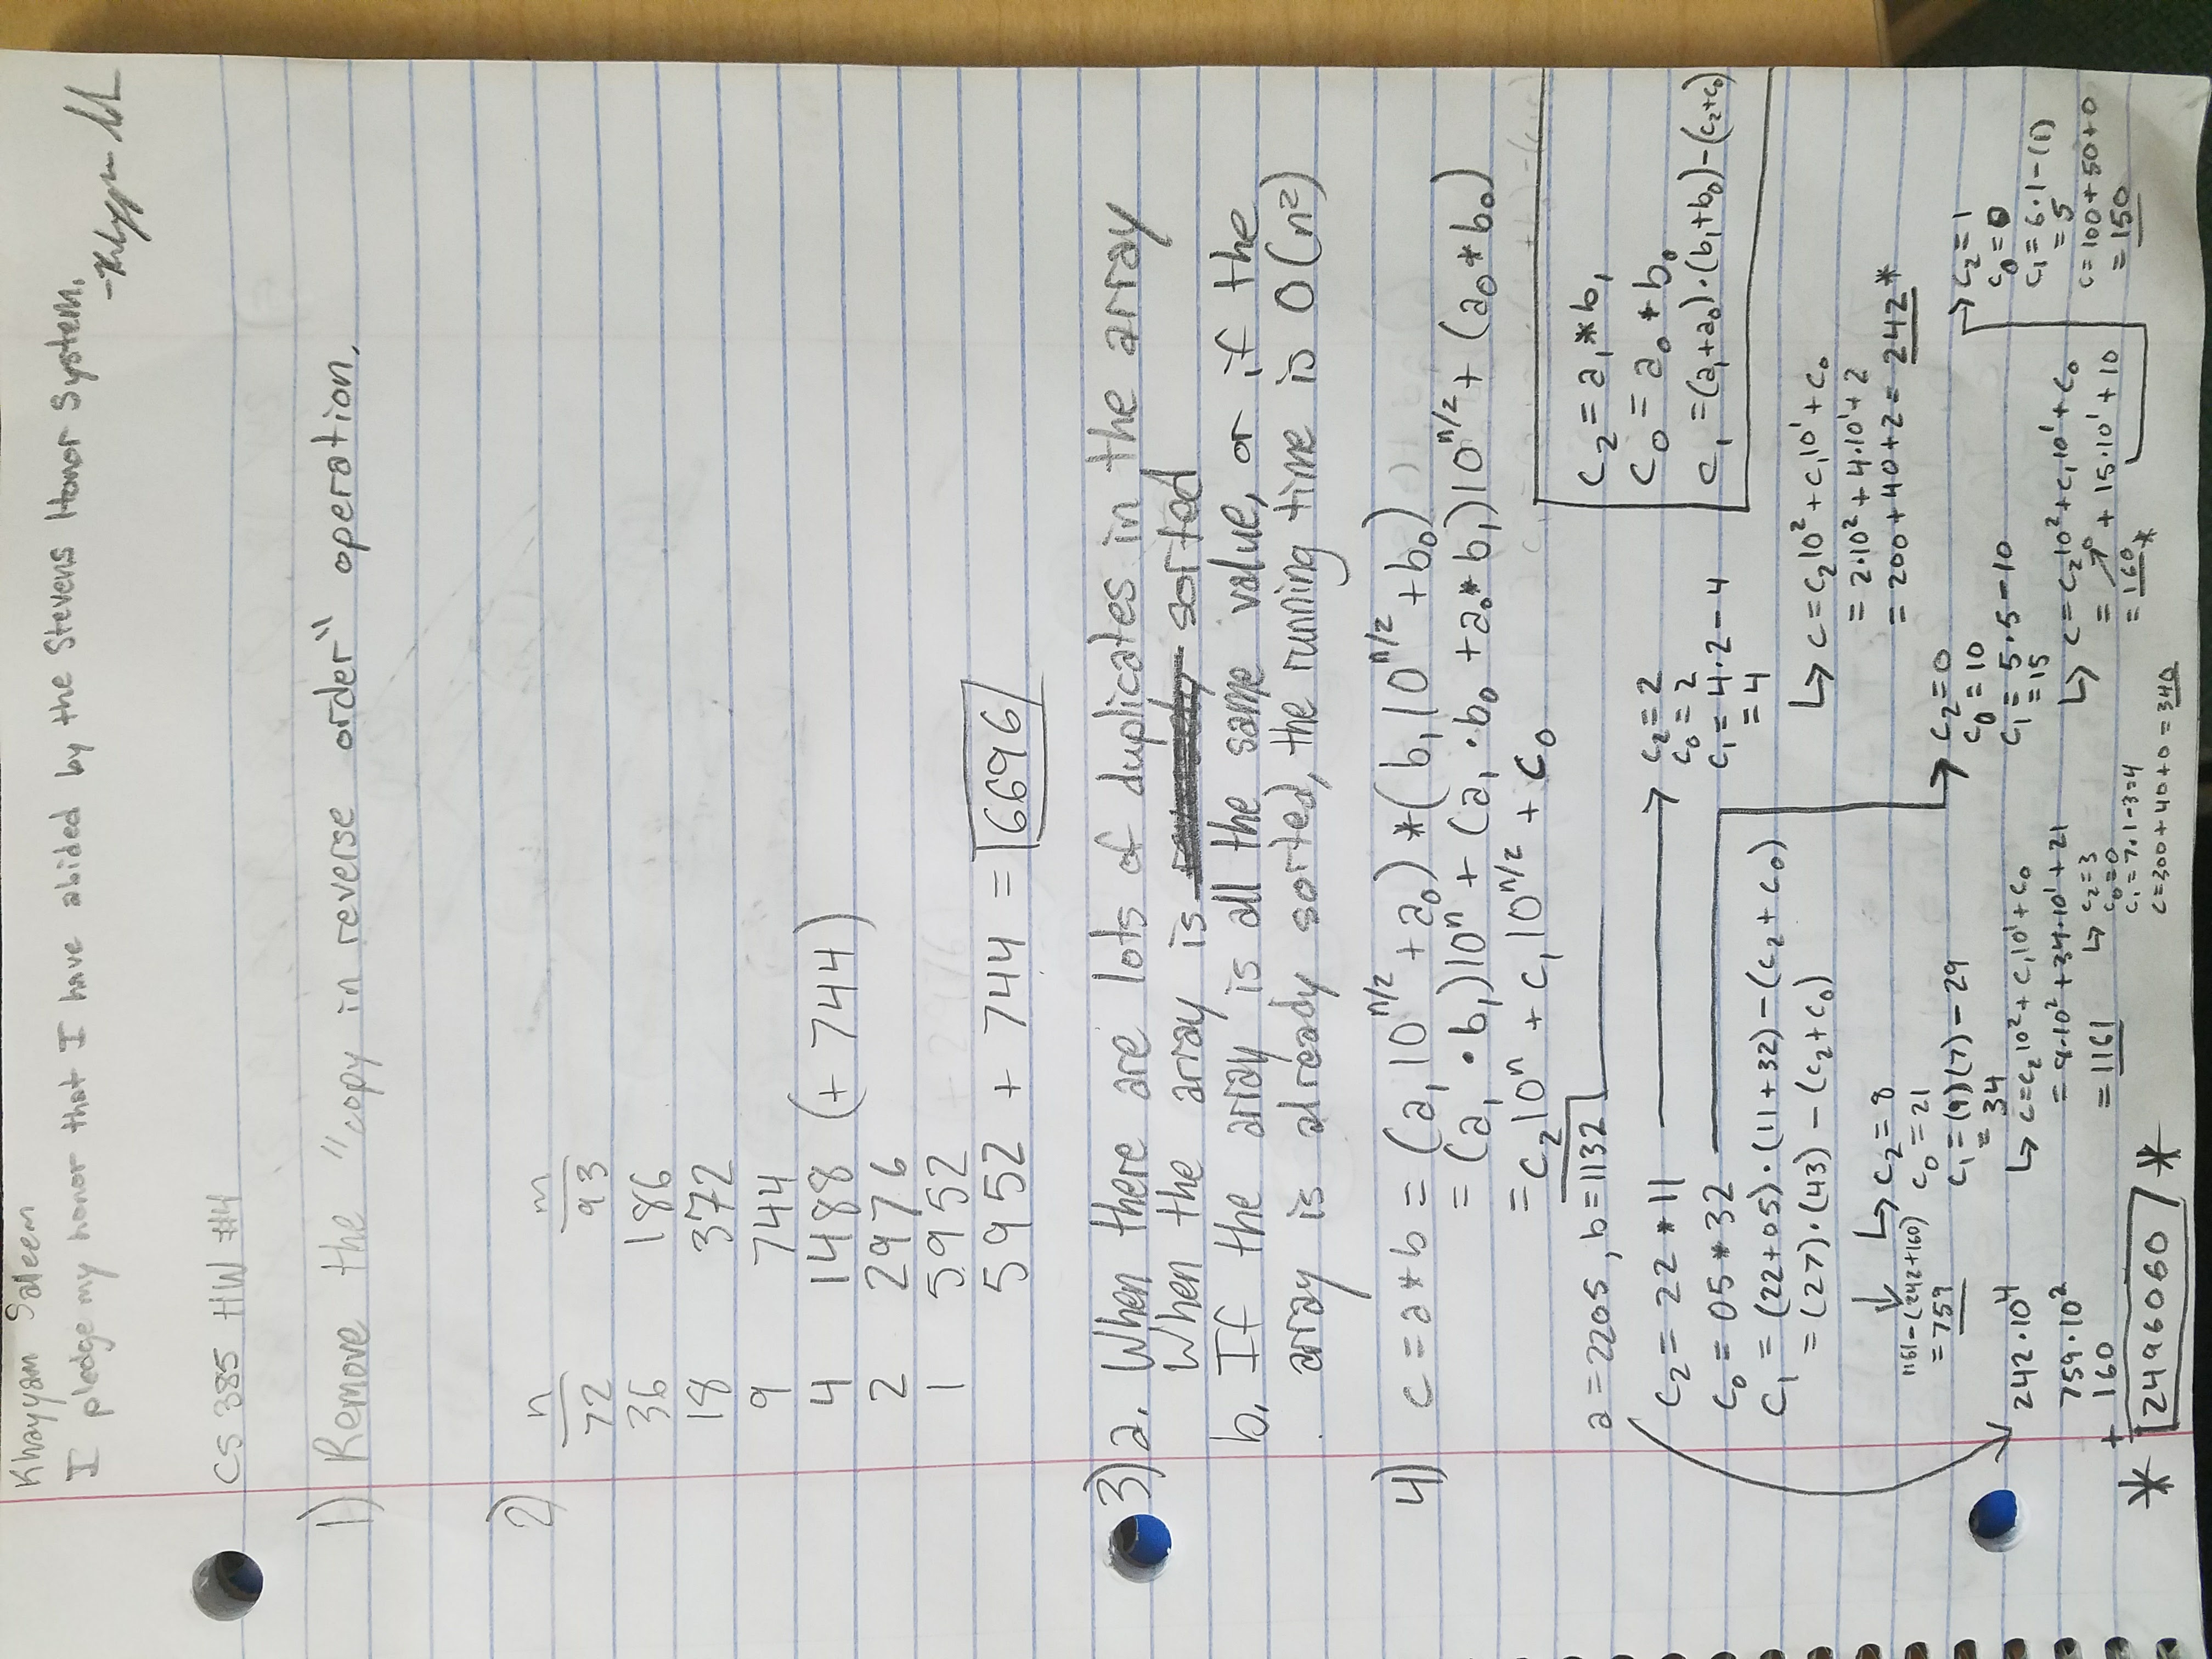 Khayyam Saleem
I pledge my honor that I have abided by the Stevens Honor System.
CS 385 HW #4
1) Remove the "copy in reverse order" operation.
2)
n m
72 93
36 186
18 372
9 744
4 1488 (+ 744)
2 2976
1 5952 + 2976
5952 + 744 = 6696
3) a. When there are lots of duplicates in the array
When the array is sorted
b. If the array is all the same value, or if the
array is already sorted, the running time is O(n²)
4) c = a * b = (a₁10^(n/2) + a₀) * (b₁10^(n/2) + b₀)
= (a₁ · b₁)10ⁿ + (a₁ · b₀ + a₀ * b₁)10^(n/2) + (a₀ * b₀)
= c₂10ⁿ + c₁10^(n/2) + c₀
a = 2205, b = 1132
c₂ = a₁ * b₁
c₀ = a₀ * b₀
c₁ = (a₁+a₀)·(b₁+b₀)-(c₂+c₀)
c₂ = 22 * 11
c₀ = 05 * 32
c₁ = (22+05)·(11+32)-(c₂+c₀)
= (27)·(43) - (c₂+c₀)
1161-(242+160)
= 759
c₂ = 8
c₀ = 21
c₁ = (9)(7) - 29
= 34
↳ c=c₂10²+c₁10¹+c₀
= 8·10²+34·10¹+21
= 1161
↳ c₂=3
c₀=0
c₁=7·1-3=4
c=300+40+0=340
c₂ = 2
c₀ = 2
c₁ = 4·2-4
= 4
↳ c=c₂10²+c₁10¹+c₀
= 2·10²+4·10¹+2
= 200+40+2= 242*
c₂=0
c₀=10
c₁=5·5-10
=15
↳ c=c₂10²+c₁10¹+c₀
= 0 + 15·10¹+10
= 160*
c₂=1
c₀=0
c₁=6·1-(1)
= 5
c=100+50+0
= 150
242·10⁴
759·10²
+ 160
* 2496060 *